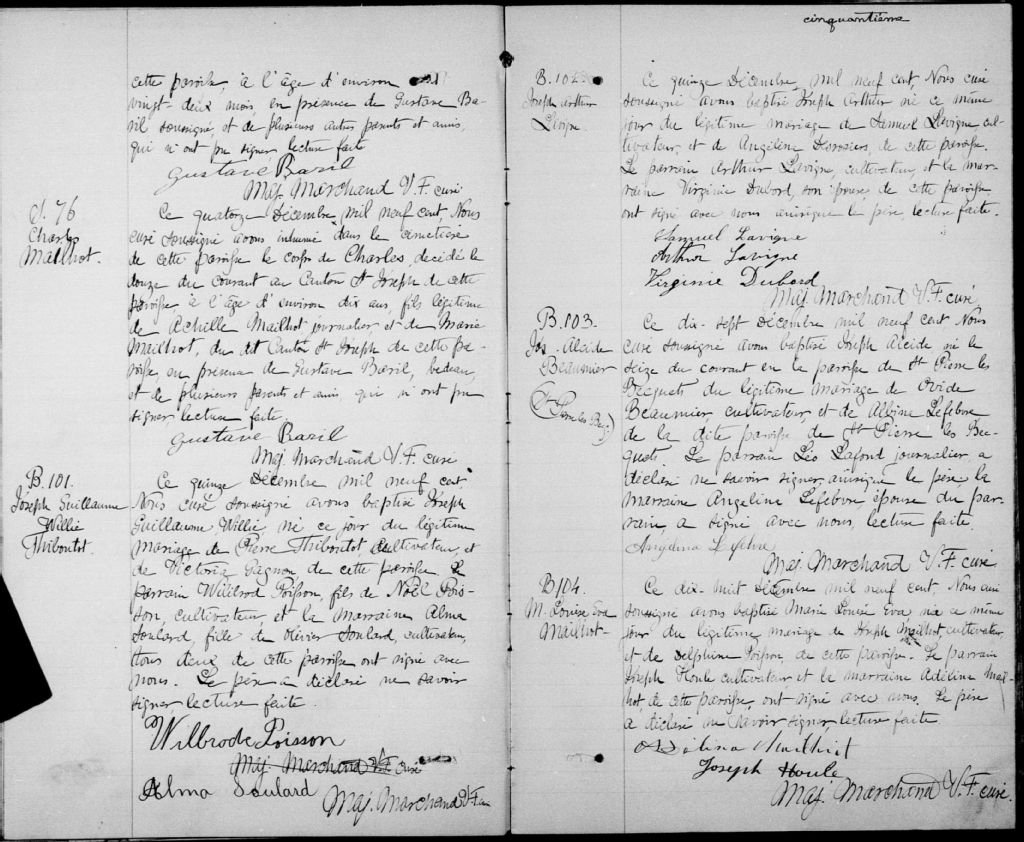 cette paroisse, à l'âge d'environ
vingt-deux mois, en présence de Gustave Ba-
ril soussigné, et de plusieurs autres parents et amis,
qui n'ont pu signer lecture faite
Gustave Baril
Maj. Marchand V.F. curé
S. 76
Charles
Mailhot.
Ce quatorze Décembre mil neuf cent, Nous
curé soussigné avons inhumé dans le cimetière
de cette paroisse le corps de Charles, décédé le
douze du courant au Canton St Joseph de cette
paroisse à l'âge d'environ dix ans, fils légitime
de Achille Mailhot journalier et de Marie
Mailhot, du dit Canton St Joseph de cette pa-
roisse, en présence de Gustave Baril, bedeau,
et de plusieurs parents et amis, qui n'ont pu
signer lecture faite
Gustave Baril
Maj. Marchand V.F. curé
B. 101.
Joseph Guillaume
Willie
Thiboutot.
Ce quinze Décembre mil neuf cent
Nous curé soussigné avons baptisé Joseph
Guillaume Willie né ce jour du légitime
mariage de Pierre Thiboutot cultivateur, et
de Victoria Gagnon de cette paroisse Le
parrain Wilbrod Poisson, fils de Noël Pois-
son, cultivateur et la marraine Alma
Soulard, fille de Olivier Soulard, cultivateur,
tous deux de cette paroisse ont signé avec
nous. Le père a déclaré ne savoir
signer lecture faite.
Wilbrode Poisson
Maj. Marchand V.F. curé
Alma Soulard
Maj. Marchand V.F. curé
cinquantième
B. 102
Joseph Arthur
Lavigne.
Ce quinze Décembre, mil neuf cent, Nous curé
soussigné avons baptisé Joseph Arthur né ce même
jour du légitime mariage de Samuel Lavigne, cul-
tivateur, et de Angéline Desrosiers, de cette paroisse.
Le parrain Arthur Lavigne, cultivateur, et la mar-
raine Virginie Dubord, son épouse de cette paroisse
ont signé avec nous ainsique le père, lecture faite.
Samuel Lavigne
Arthur Lavigne
Virginie Dubord
Maj. Marchand V.F. curé
B. 103.
Jos. Alcide
Beaumier
(St Pierre les Becq.)
Ce dix-sept Décembre mil neuf cent Nous
curé soussigné avons baptisé Joseph Alcide né le
seize du courant en la paroisse de St Pierre les
Becquets du légitime mariage de Ovide
Beaumier cultivateur, et de Albine Lefebvre
de la dite paroisse de St Pierre les Bec-
quets Le parrain Léo Lafond journalier, a
déclaré ne savoir signer, ainsique le père, la
marraine Angéline Lefebvre, épouse du par-
rain, a signé avec nous, lecture faite.
Maj. Marchand V.F. curé
B104.
M. Louise Eva
Mailhot-
Ce dix-huit Décembre mil neuf cent, Nous curé
soussigné avons baptisé Marie Louise Eva née ce même
jour du légitime mariage de Joseph Mailhot, cultivateur,
et de Delphine Poisson, de cette paroisse. Le parrain
Joseph Houle cultivateur et la marraine Adéline Mail-
hot, de cette paroisse, ont signé avec nous. Le père
a déclaré ne savoir signer, lecture faite.
Adélina Mailhit
Joseph Houle
Maj. Marchand V.F. curé.